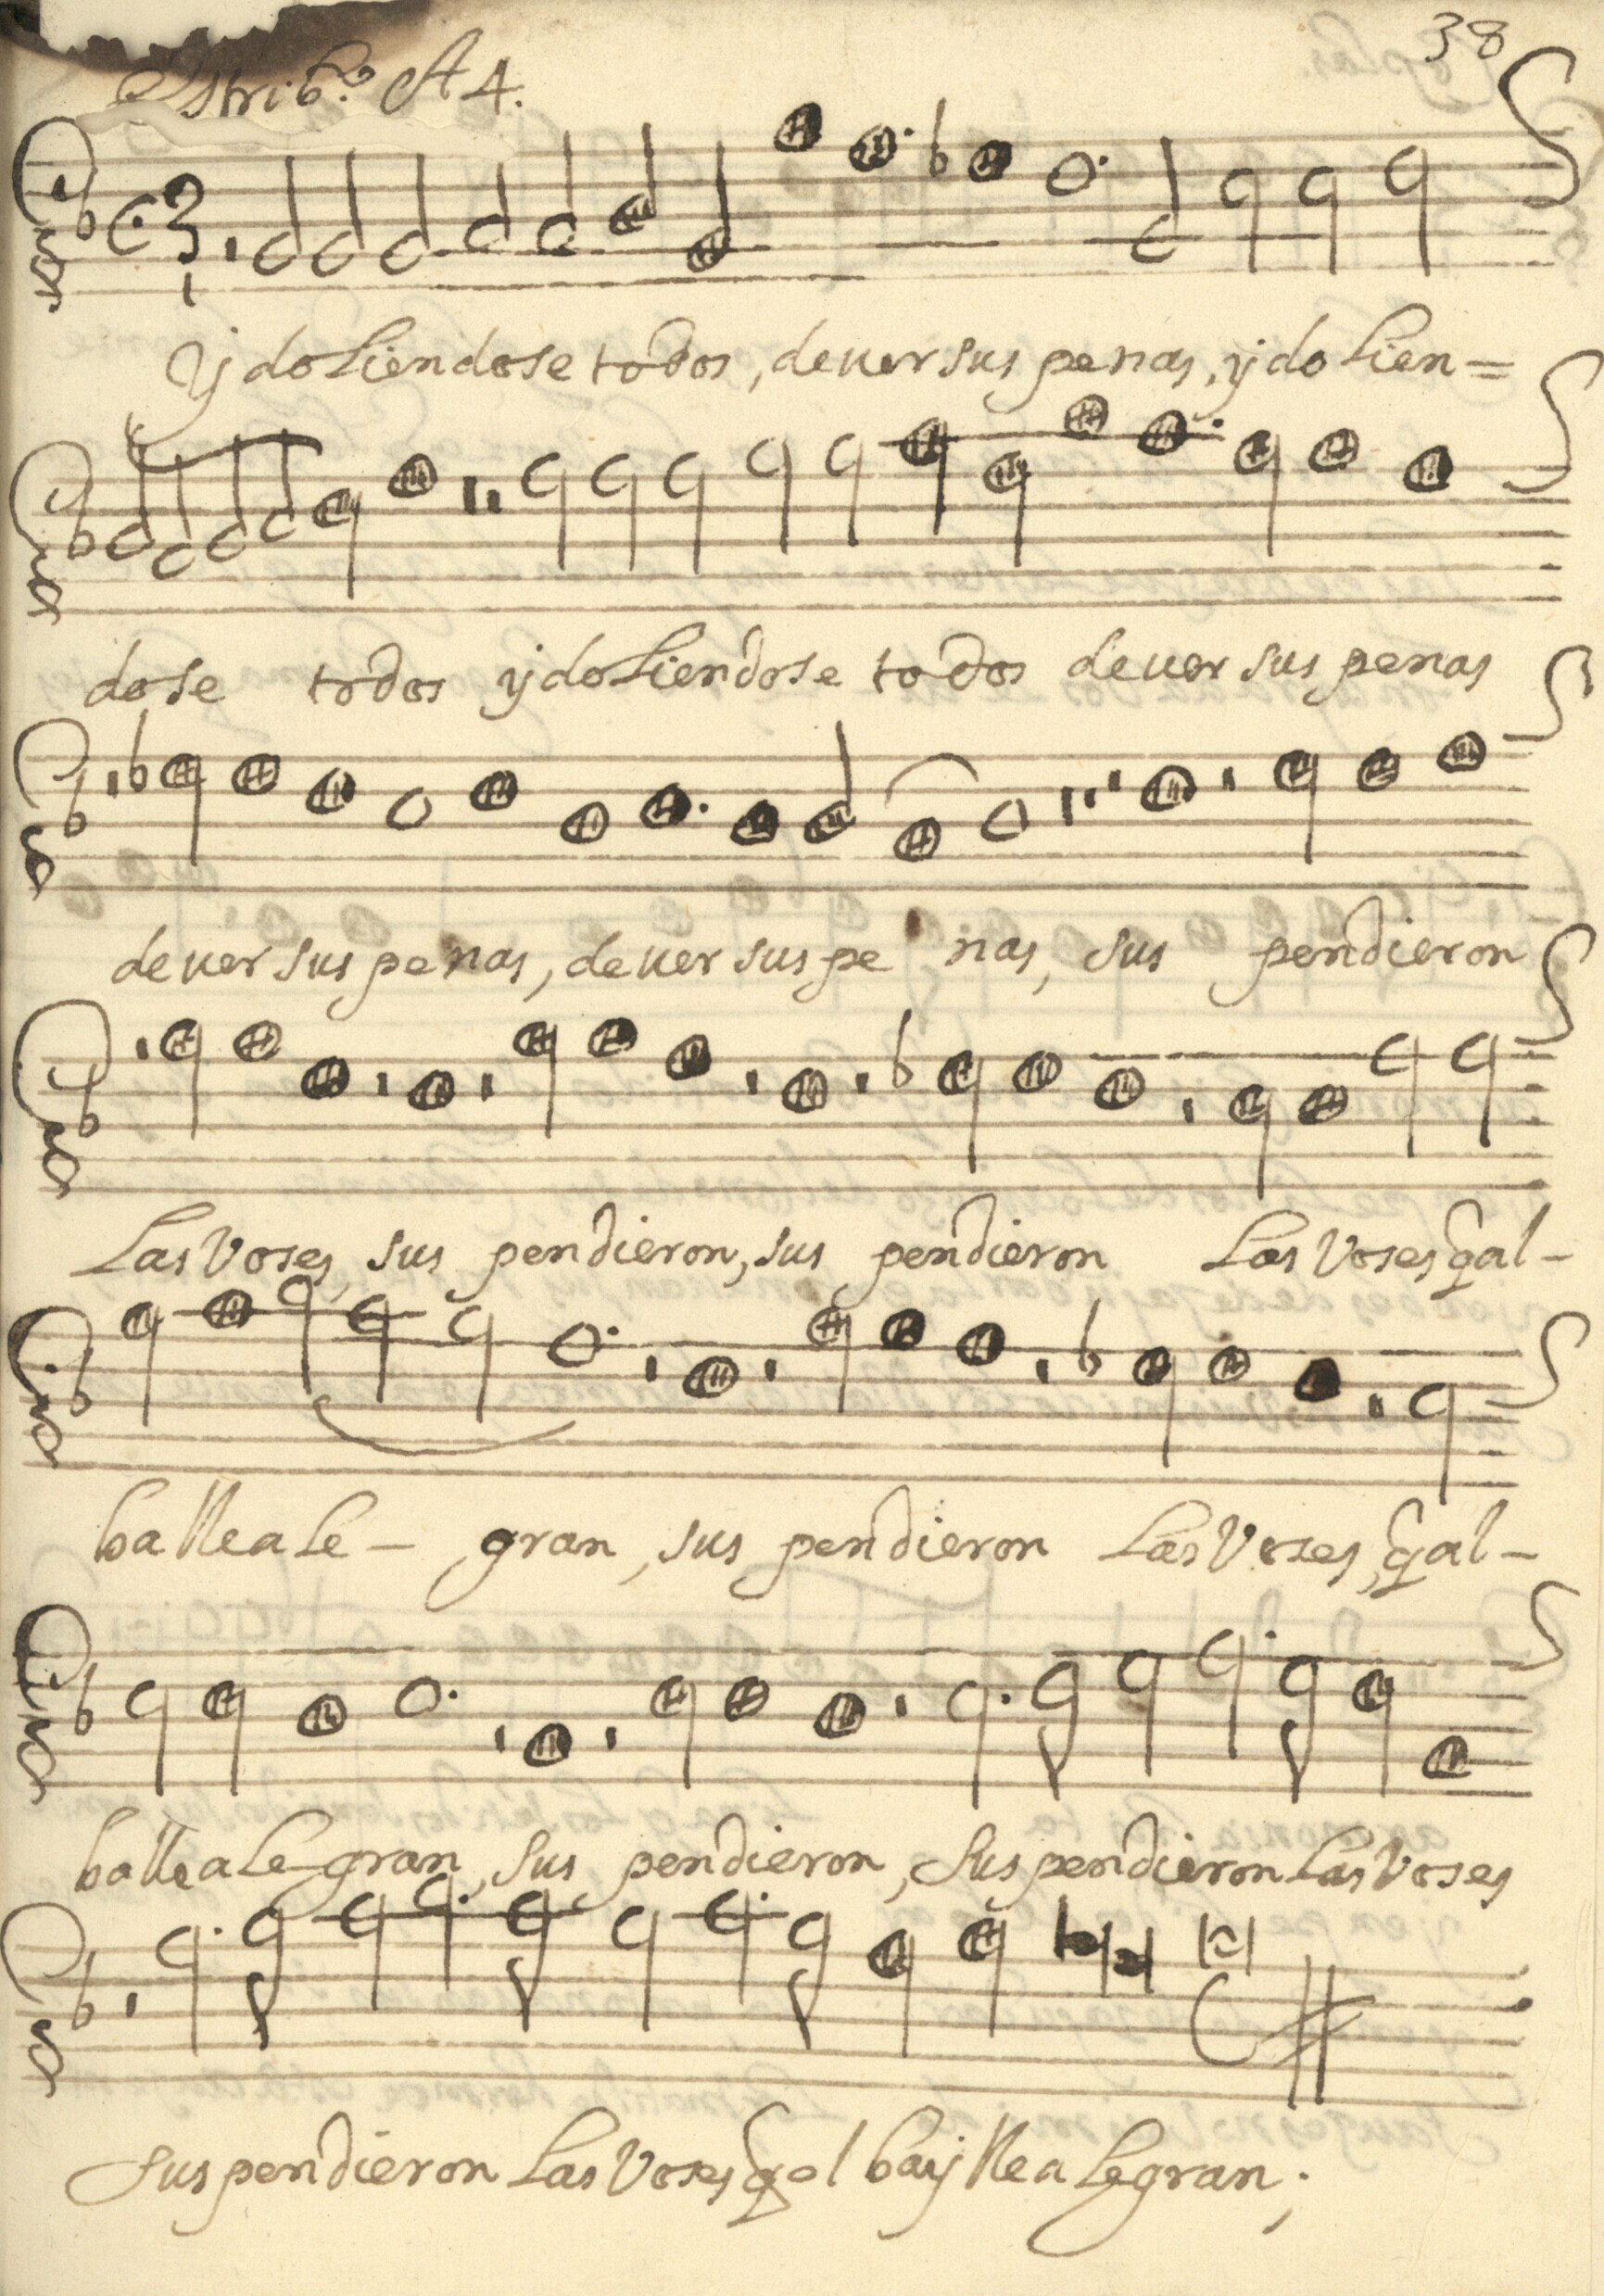 38
Estribo. A 4.
Y doliendose todos, de uer sus penas, y dolien=
dose todos y doliendose todos de uer sus penas
de uer sus penas, de uer sus pe nas, sus pendieron
Las Voses, sus pendieron, sus pendieron Las Voses q̃ al-
balle a le- gran, sus pendieron Las Voses, q̃ al-
balle a le-gran, sus pendieron, sus pendieron Las Voses
sus pendieron Las Voses q̃ al baylle a legran;